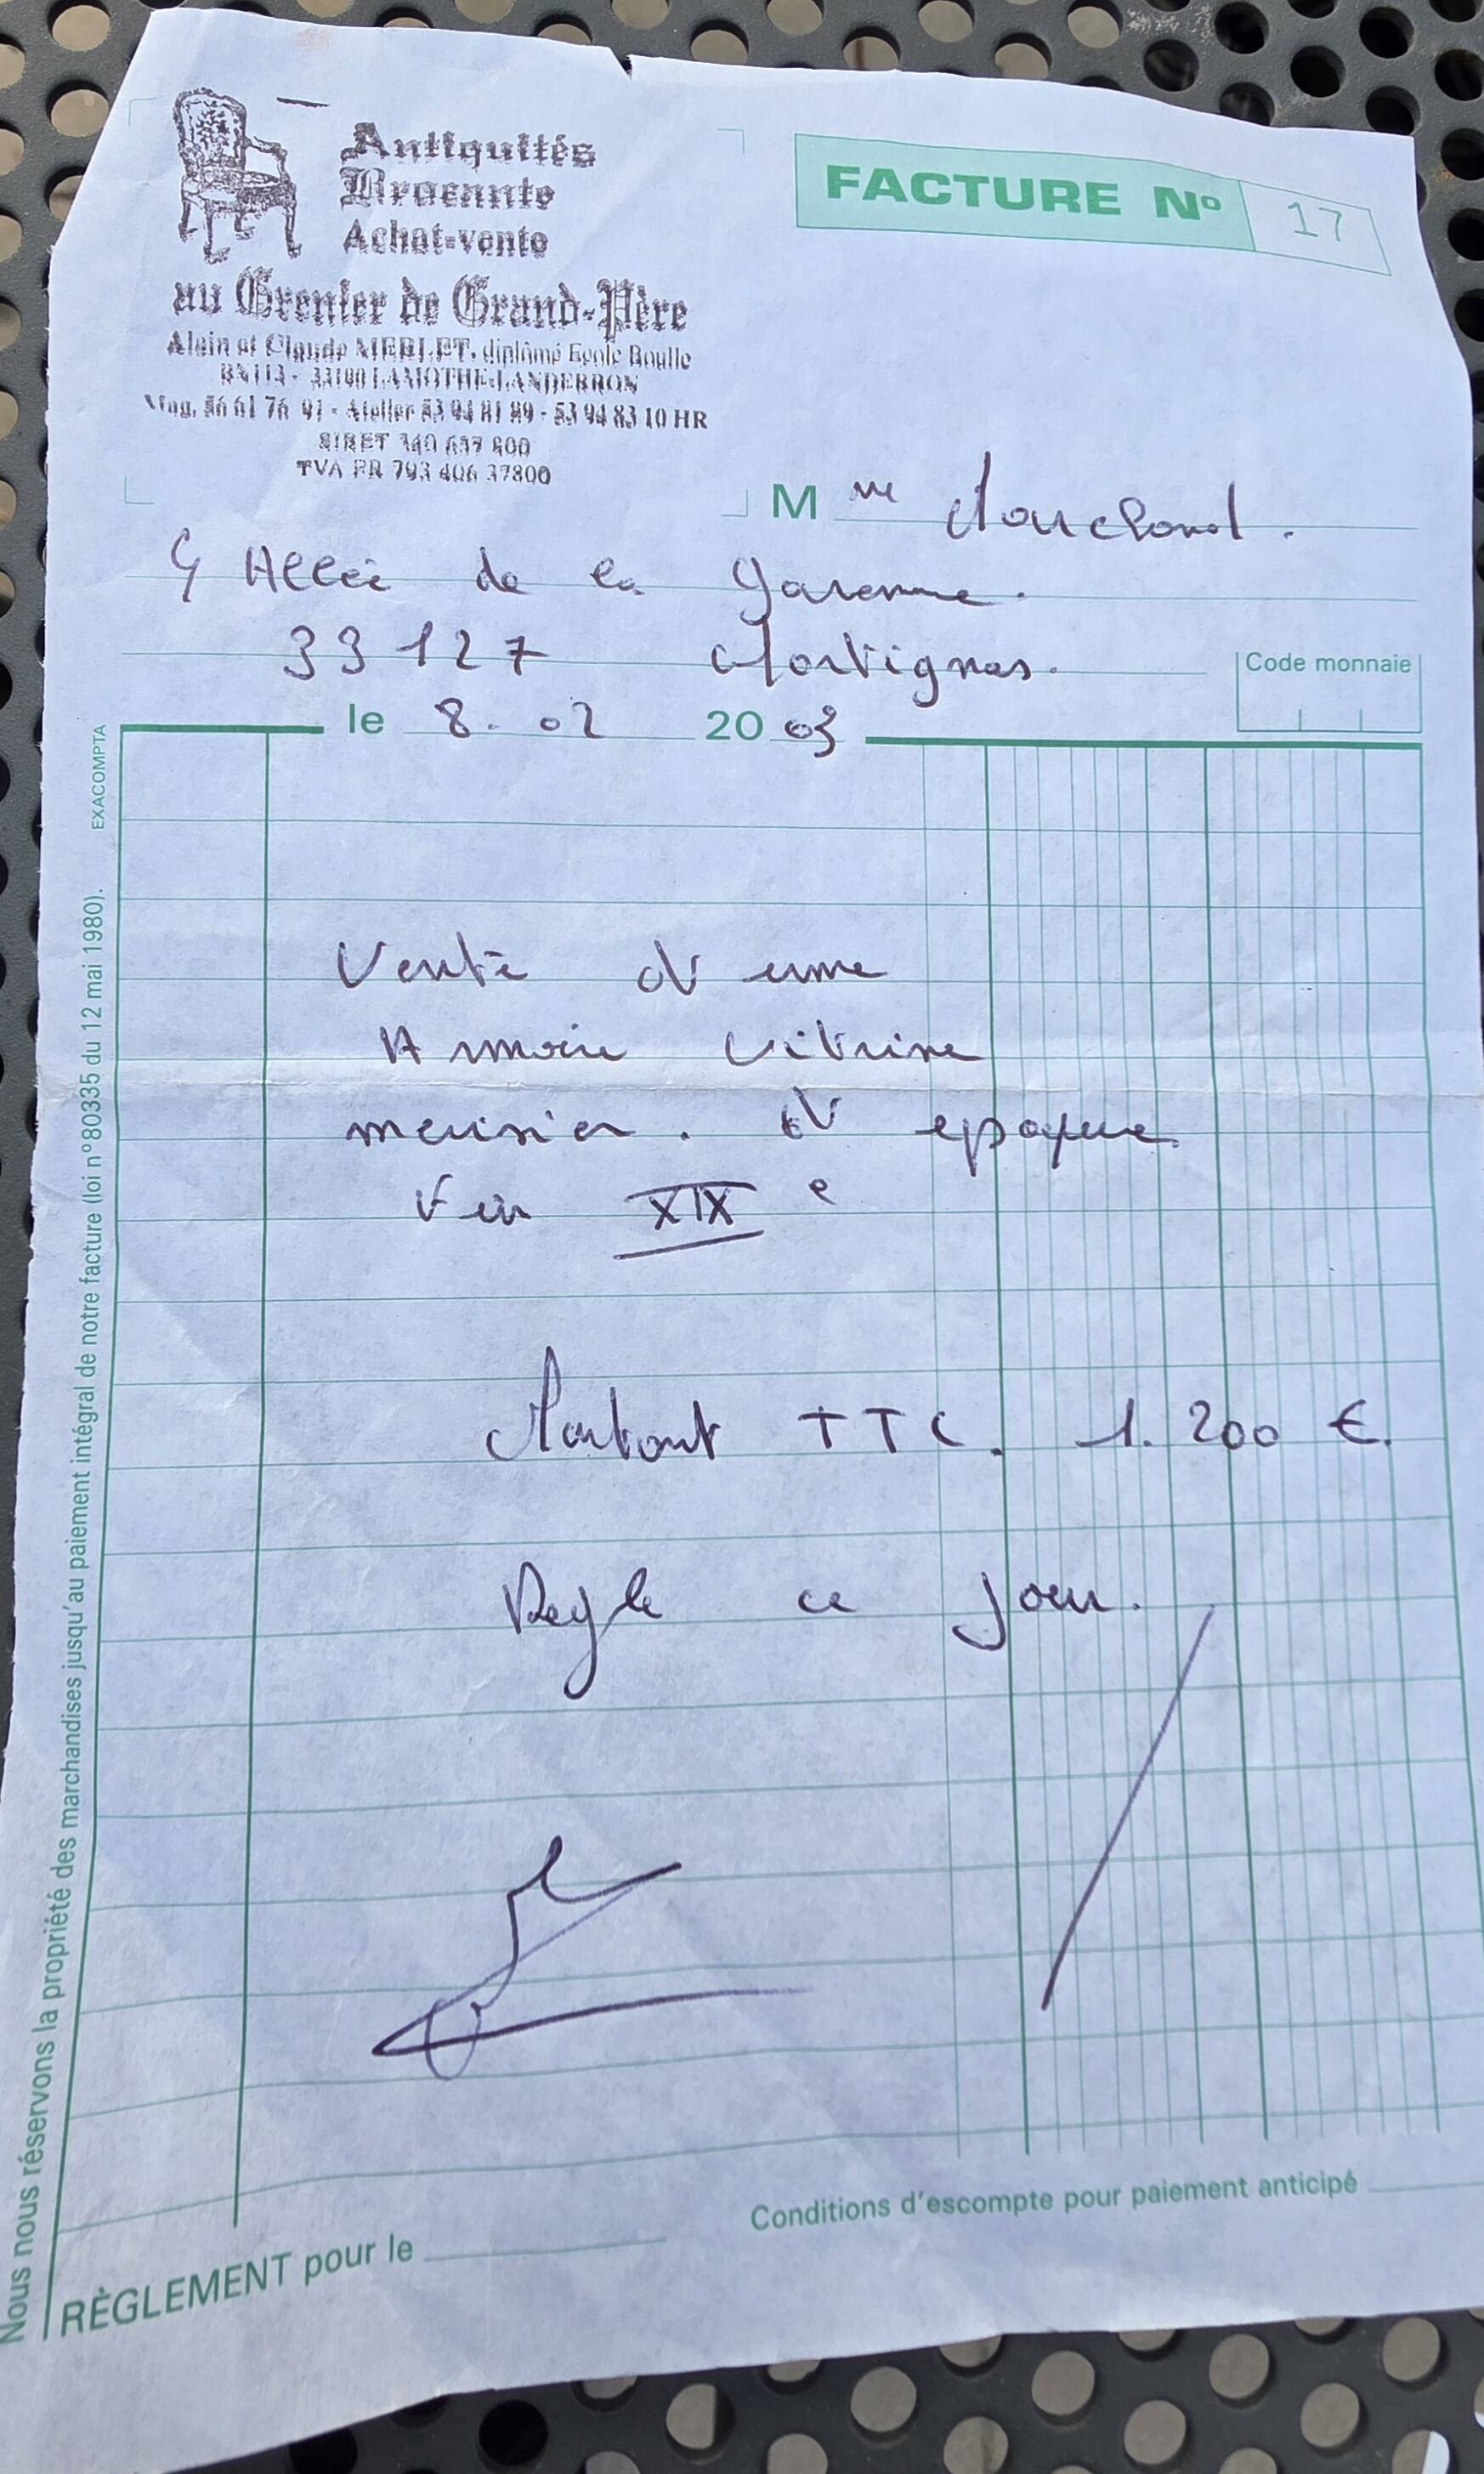 Antiquités
Brocante
Achat-vente
au Grenier de Grand-Père
Alain et Claude MERLET, diplômé Ecole Boulle
RN113 - 33190 LAMOTHE-LANDERRON
Mag. 56 61 76 91 - Atelier 53 94 81 89 - 53 94 83 10 HR
SIRET 340 637 800
TVA FR 793 406 37800
FACTURE Nº 17
M me
Allée de la Garenne.
33127 Martignas.
Code monnaie
le 8. 02 2003
EXACOMPTA
Nous nous réservons la propriété des marchandises jusqu'au paiement intégral de notre facture (loi n°80335 du 12 mai 1980).
Vente d' une
Armoire vitrine
merisier. d' epoque
Fin XIX e
Montant TTC. 1.200 €.
Regle ce jour.
Conditions d'escompte pour paiement anticipé
RÈGLEMENT pour le